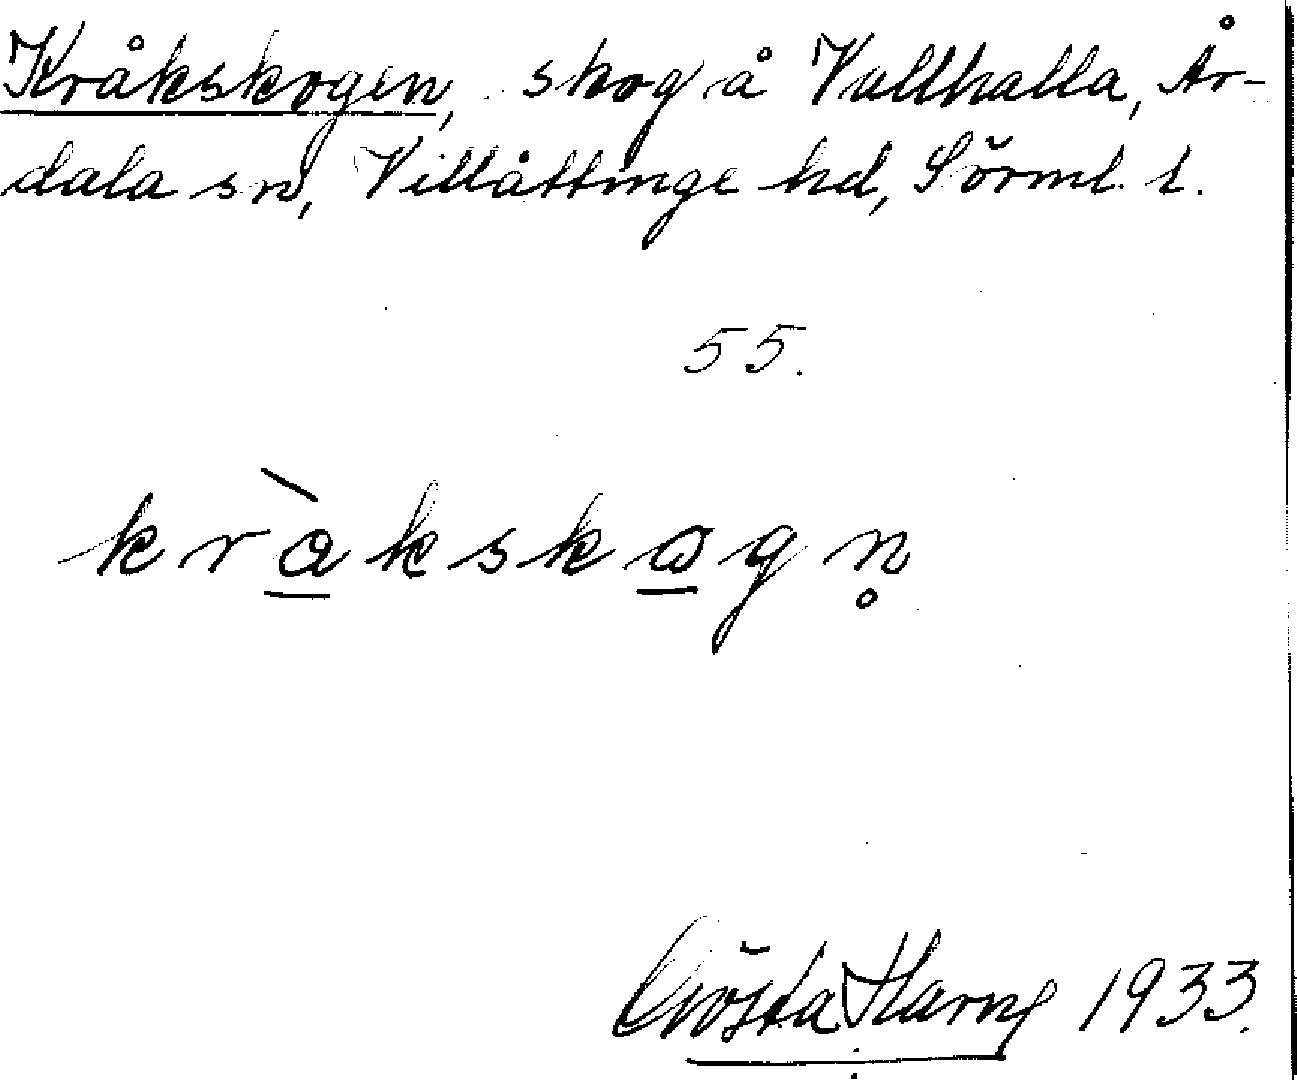 Kråkskogen, skog å Vallhalla, År-
dala sn, Villåttinge hd, Sörml. l.
55.
kràkskogn̥
Gösta Harng 1933.